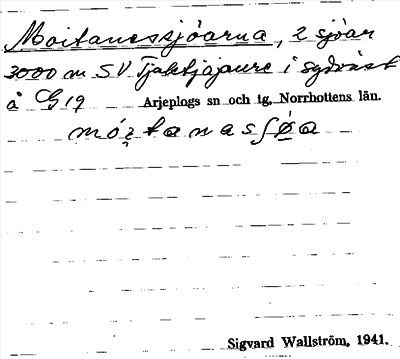 Moitanessjöarna, 2 sjöar
3000 m SV Tjaktjajaure i sydväst
å G 19 Arjeplogs sn och tg, Norrbottens län.
Sigvard Wallström, 1941.